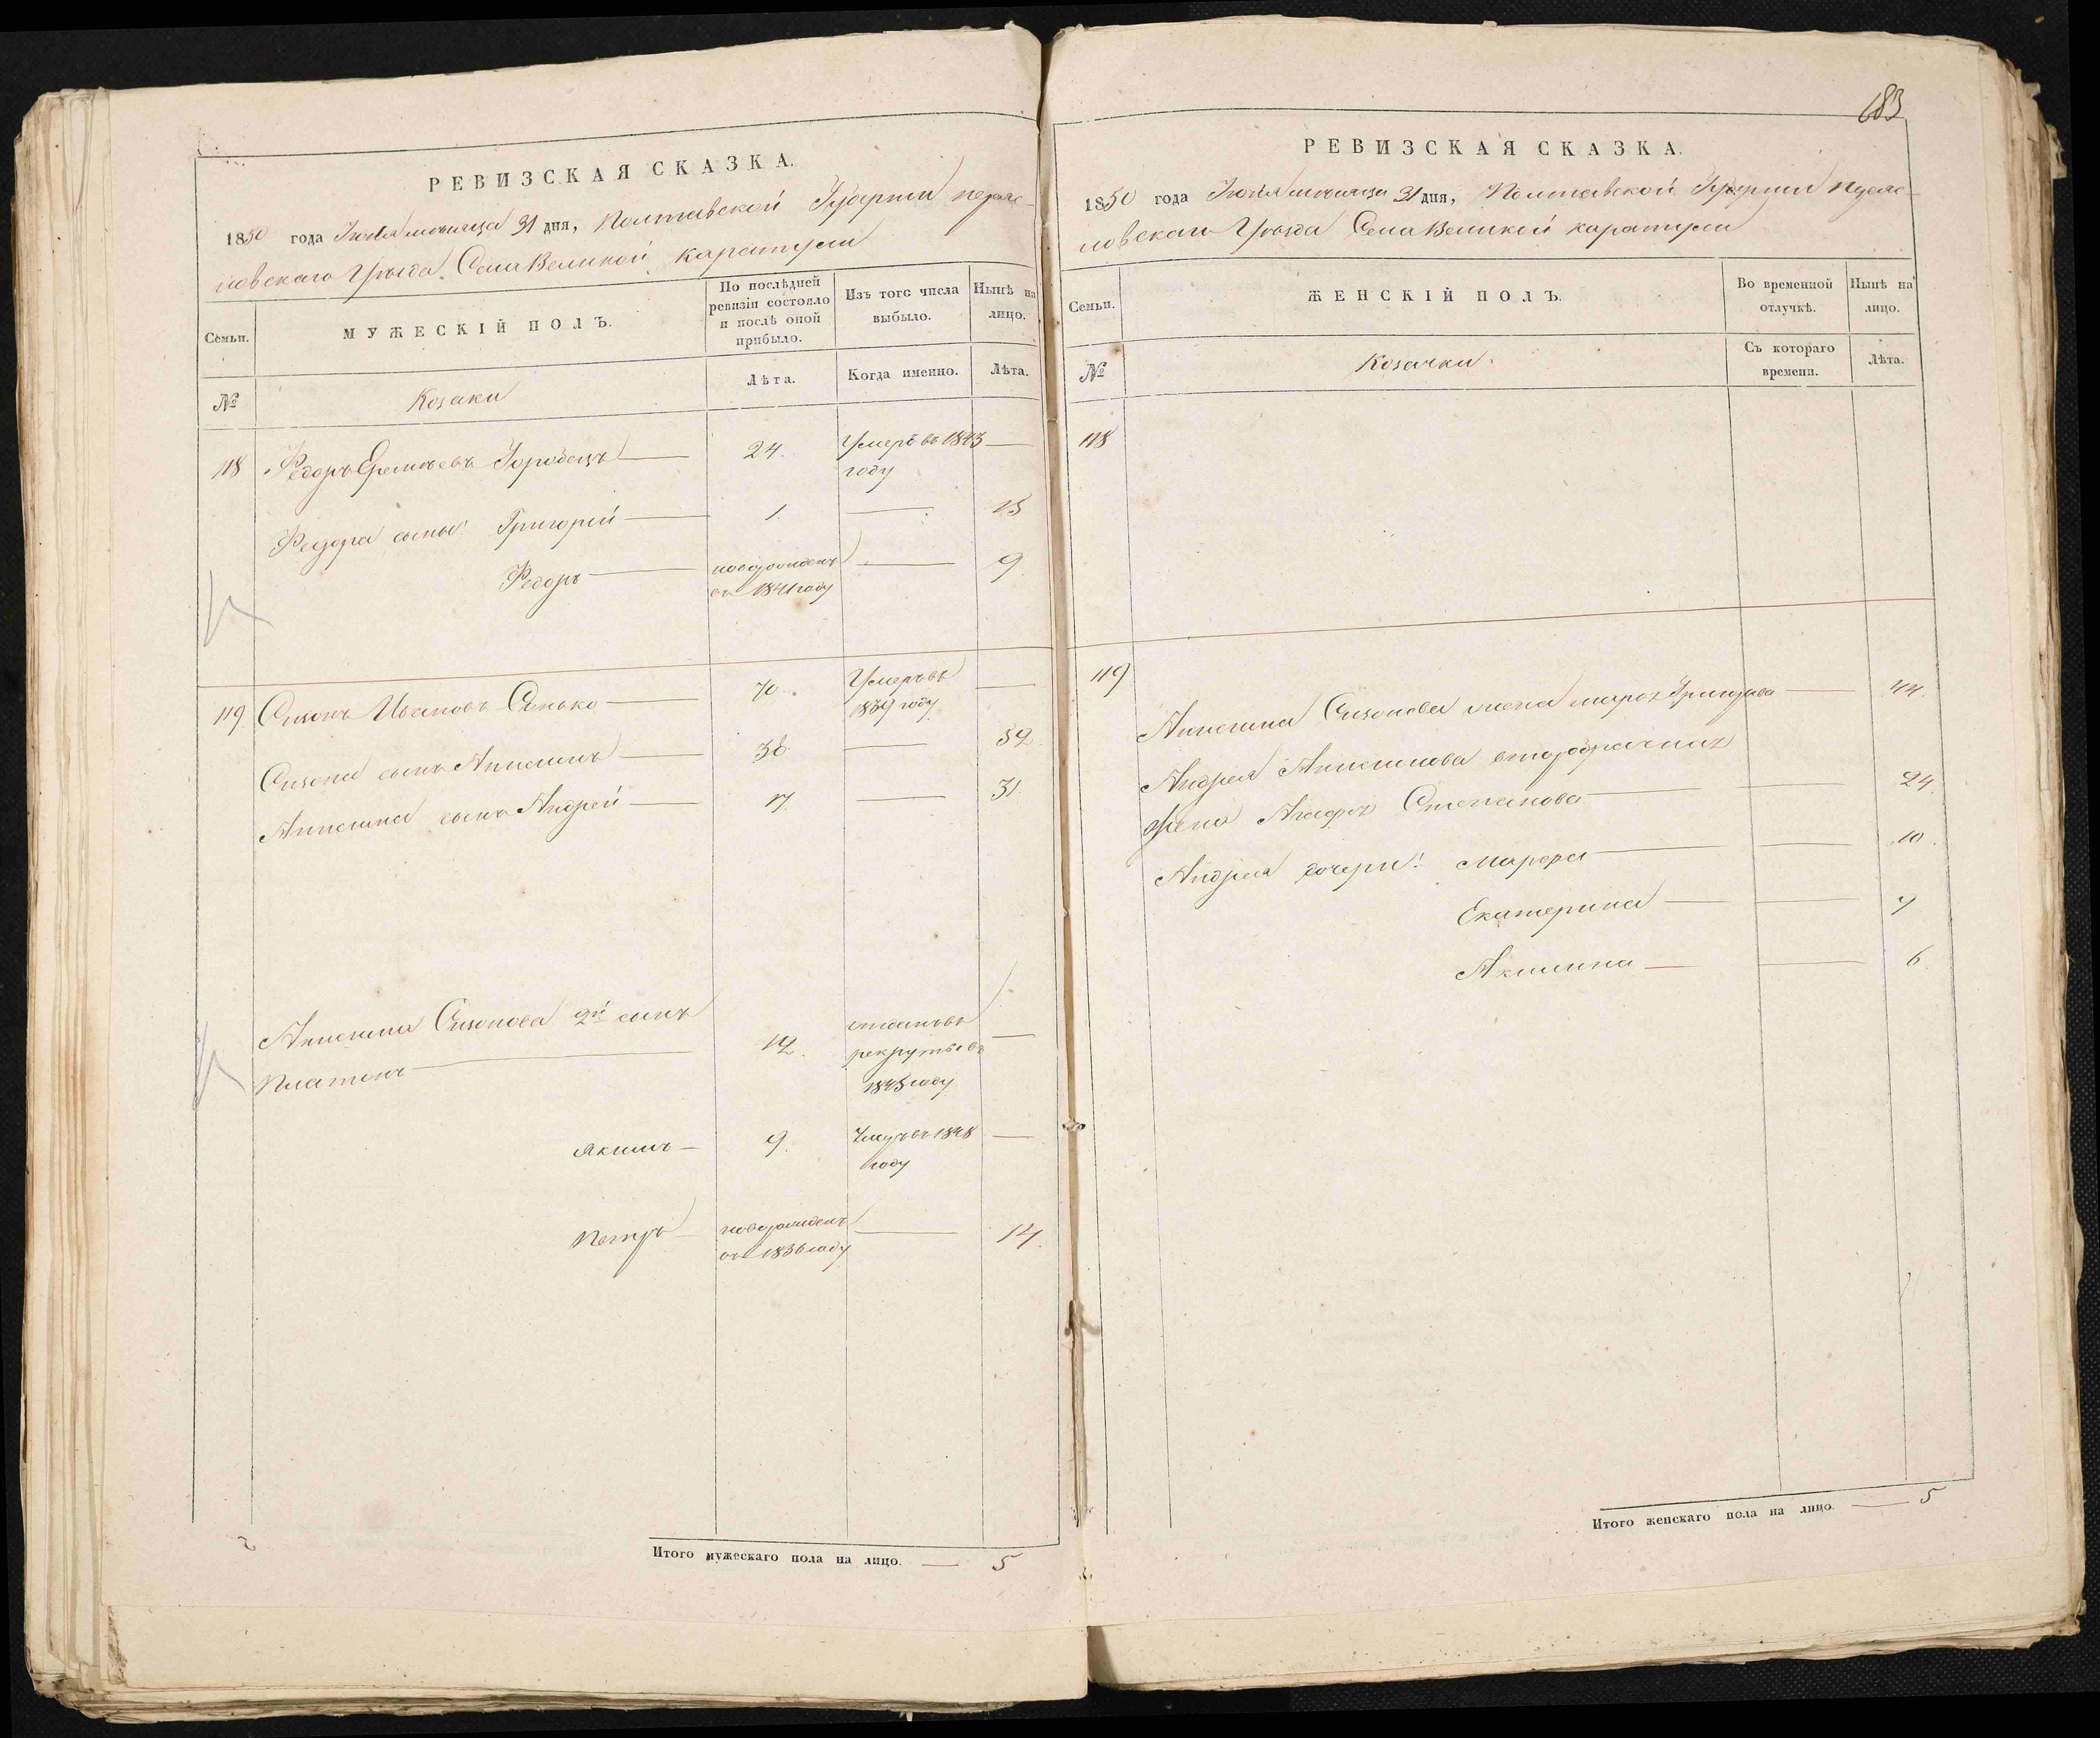 РЕВИЗСКАЯ СКАЗКА.
1850 года Июля месяца 31 дня, Полтавской Губернии Переяс-
ловскаго Уѣзда Села Великой Каратули
Семьи.
МУЖЕСКІЙ ПОЛЪ.
По послѣдней ревизіи состояло и послѣ оной прибыло.
Изъ того числа выбыло.
Нынѣ на лицо.
№
Козаки
Лѣта.
Когда именно.
Лѣта.
118 Федоръ Еремѣевъ Городецъ — 24. Умеръ въ 1843 —
году
Федора сыны: Григорій — 1. — 13
Федоръ — новорожденъ — 9
въ 1841 году
119 Сизонъ Ивановъ Сенько — 70. Умеръ въ —
1839 году
Сизона сынъ Анисимъ — 38 — 52
Анисима сынъ Андрей — 17. — 31.
Анисима Сизонова 2й сынъ
Платонъ — 12. отданъ въ —
рекруты въ
1845 году
Якимъ — 9. Умеръ въ 1848 —
году
Петръ — новорожденъ — 14.
въ 1836 году
Итого мужескаго пола на лицо. — 5
183
РЕВИЗСКАЯ СКАЗКА.
1850 года Июля месяца 31 дня, Полтавской Губернии Переяс-
ловскаго Уѣзда Села Великой Каратули
Семьи.
ЖЕНСКІЙ ПОЛЪ.
Во временной отлучкѣ.
Нынѣ на лицо.
№
Козачки.
Съ котораго времени.
Лѣта.
118
119
Анисима Сизонова жена Григорьева — 44.
Андрея Анисимова второбрачная
жена Степанова — — 24.
Андрея дочери: Марфа — — 10.
Екатерина — — 7
Акилина — — 6
Итого женскаго пола на лицо. — 5